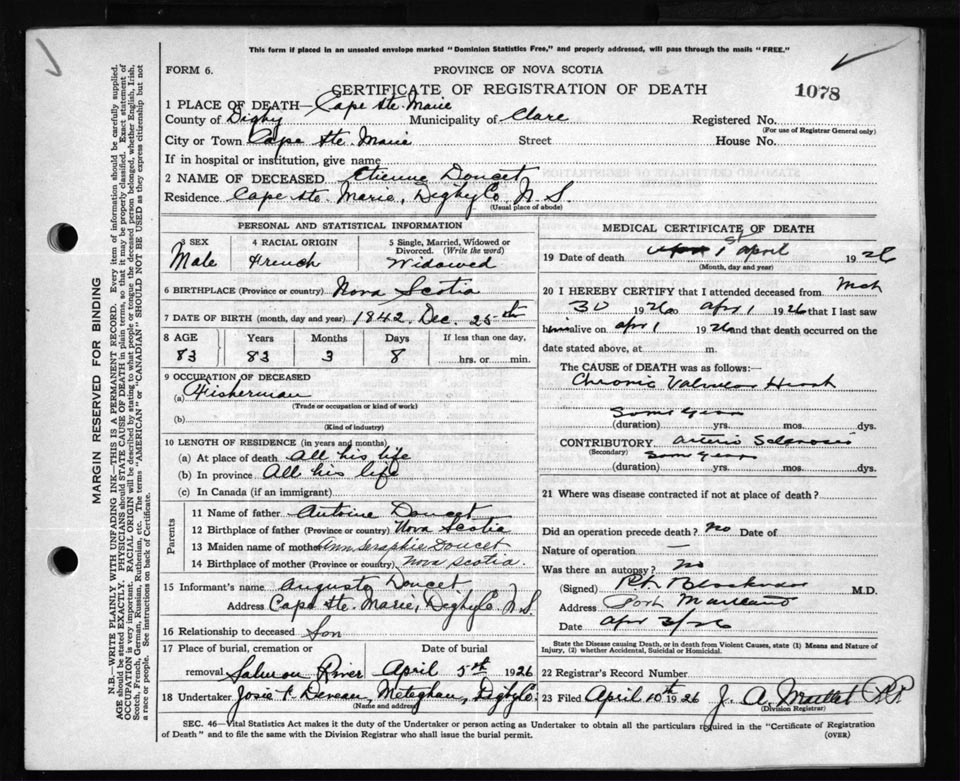 This form if placed in an unsealed envelope marked "Dominion Statistics Free," and properly addressed, will pass through the mails "FREE."
FORM 6.
PROVINCE OF NOVA SCOTIA
CERTIFICATE OF REGISTRATION OF DEATH
1078
1 PLACE OF DEATH— Cape Ste. Marie
County of Digby Municipality of Clare Registered No.
(For use of Registrar General only)
City or Town Cape Ste. Marie Street House No.
If in hospital or institution, give name
2 NAME OF DECEASED Etienne Doucet
Residence Cape Ste. Marie, Digby Co. N. S
(Usual place of abode)
PERSONAL AND STATISTICAL INFORMATION
3 SEX Male
4 RACIAL ORIGIN French
5 Single, Married, Widowed or Divorced. (Write the word) Widowed
6 BIRTHPLACE (Province or country) Nova Scotia
7 DATE OF BIRTH (month, day and year) 1842. Dec. 25th
8 AGE Years Months Days If less than one day,
83 83 3 8 hrs. or min.
9 OCCUPATION OF DECEASED
(a) Fisherman
(Trade or occupation or kind of work)
(b)
(Kind of industry)
10 LENGTH OF RESIDENCE (in years and months)
(a) At place of death All his life
(b) In province All his life
(c) In Canada (if an immigrant)
Parents
11 Name of father Antoine Doucet
12 Birthplace of father (Province or country) Nova Scotia
13 Maiden name of mother Ann Seraphie Doucet
14 Birthplace of mother (Province or country) Nova Scotia.
15 Informant's name Auguste Doucet
Address Cape Ste. Marie, Digby Co. N.S.
16 Relationship to deceased Son
17 Place of burial, cremation or Date of burial
removal Salmon River April 5th 1926
18 Undertaker Josie P. Deveau, Meteghan, Digby Co.
(Name and address)
MEDICAL CERTIFICATE OF DEATH
19 Date of death 1st April 1926
(Month, day and year)
20 I HEREBY CERTIFY that I attended deceased from Mch
30 1926 to apr 1 1926 that I last saw
him alive on apr 1 1926 and that death occurred on the
date stated above, at m.
The CAUSE of DEATH was as follows:—
Chronic Valvular Heart
some years
(duration) yrs. mos. dys.
CONTRIBUTORY arterio Sclerosis
(Secondary) some years
(duration) yrs. mos. dys.
21 Where was disease contracted if not at place of death?
Did an operation precede death? no Date of
Nature of operation —
Was there an autopsy? no
(Signed) M.D.
Address Port Maitland
Date apr 3/26
State the Disease causing Death, or in death from Violent Causes, state (1) Means and Nature of Injury, (2) whether Accidental, Suicidal or Homicidal.
22 Registrar's Record Number
23 Filed April 10th 1926 J. A. Maillet
(Division Registrar)
SEC. 46—Vital Statistics Act makes it the duty of the Undertaker or person acting as Undertaker to obtain all the particulars required in the "Certificate of Registration
of Death" and to file the same with the Division Registrar who shall issue the burial permit. (OVER)
MARGIN RESERVED FOR BINDING
N.B.—WRITE PLAINLY WITH UNFADING INK—THIS IS A PERMANENT RECORD. Every item of information should be carefully supplied.
AGE should be stated EXACTLY. PHYSICIANS should STATE CAUSE OF DEATH in plain terms, so that it may be properly classified. Exact statement of
OCCUPATION is very important. RACIAL ORIGIN will be described by stating to what people or tongue the deceased person belonged, whether English, Irish,
Scotch, French, German, Russian, Ruthenian, etc. The terms "AMERICAN" or "CANADIAN" SHOULD NOT BE USED as they express citizenship but not
a race or people. See instructions on back of Certificate.